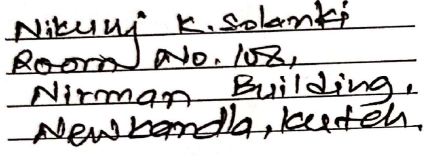 Nikunj K. Solanki
Room No. 108,
Nirman Building,
New kandla, kutch.